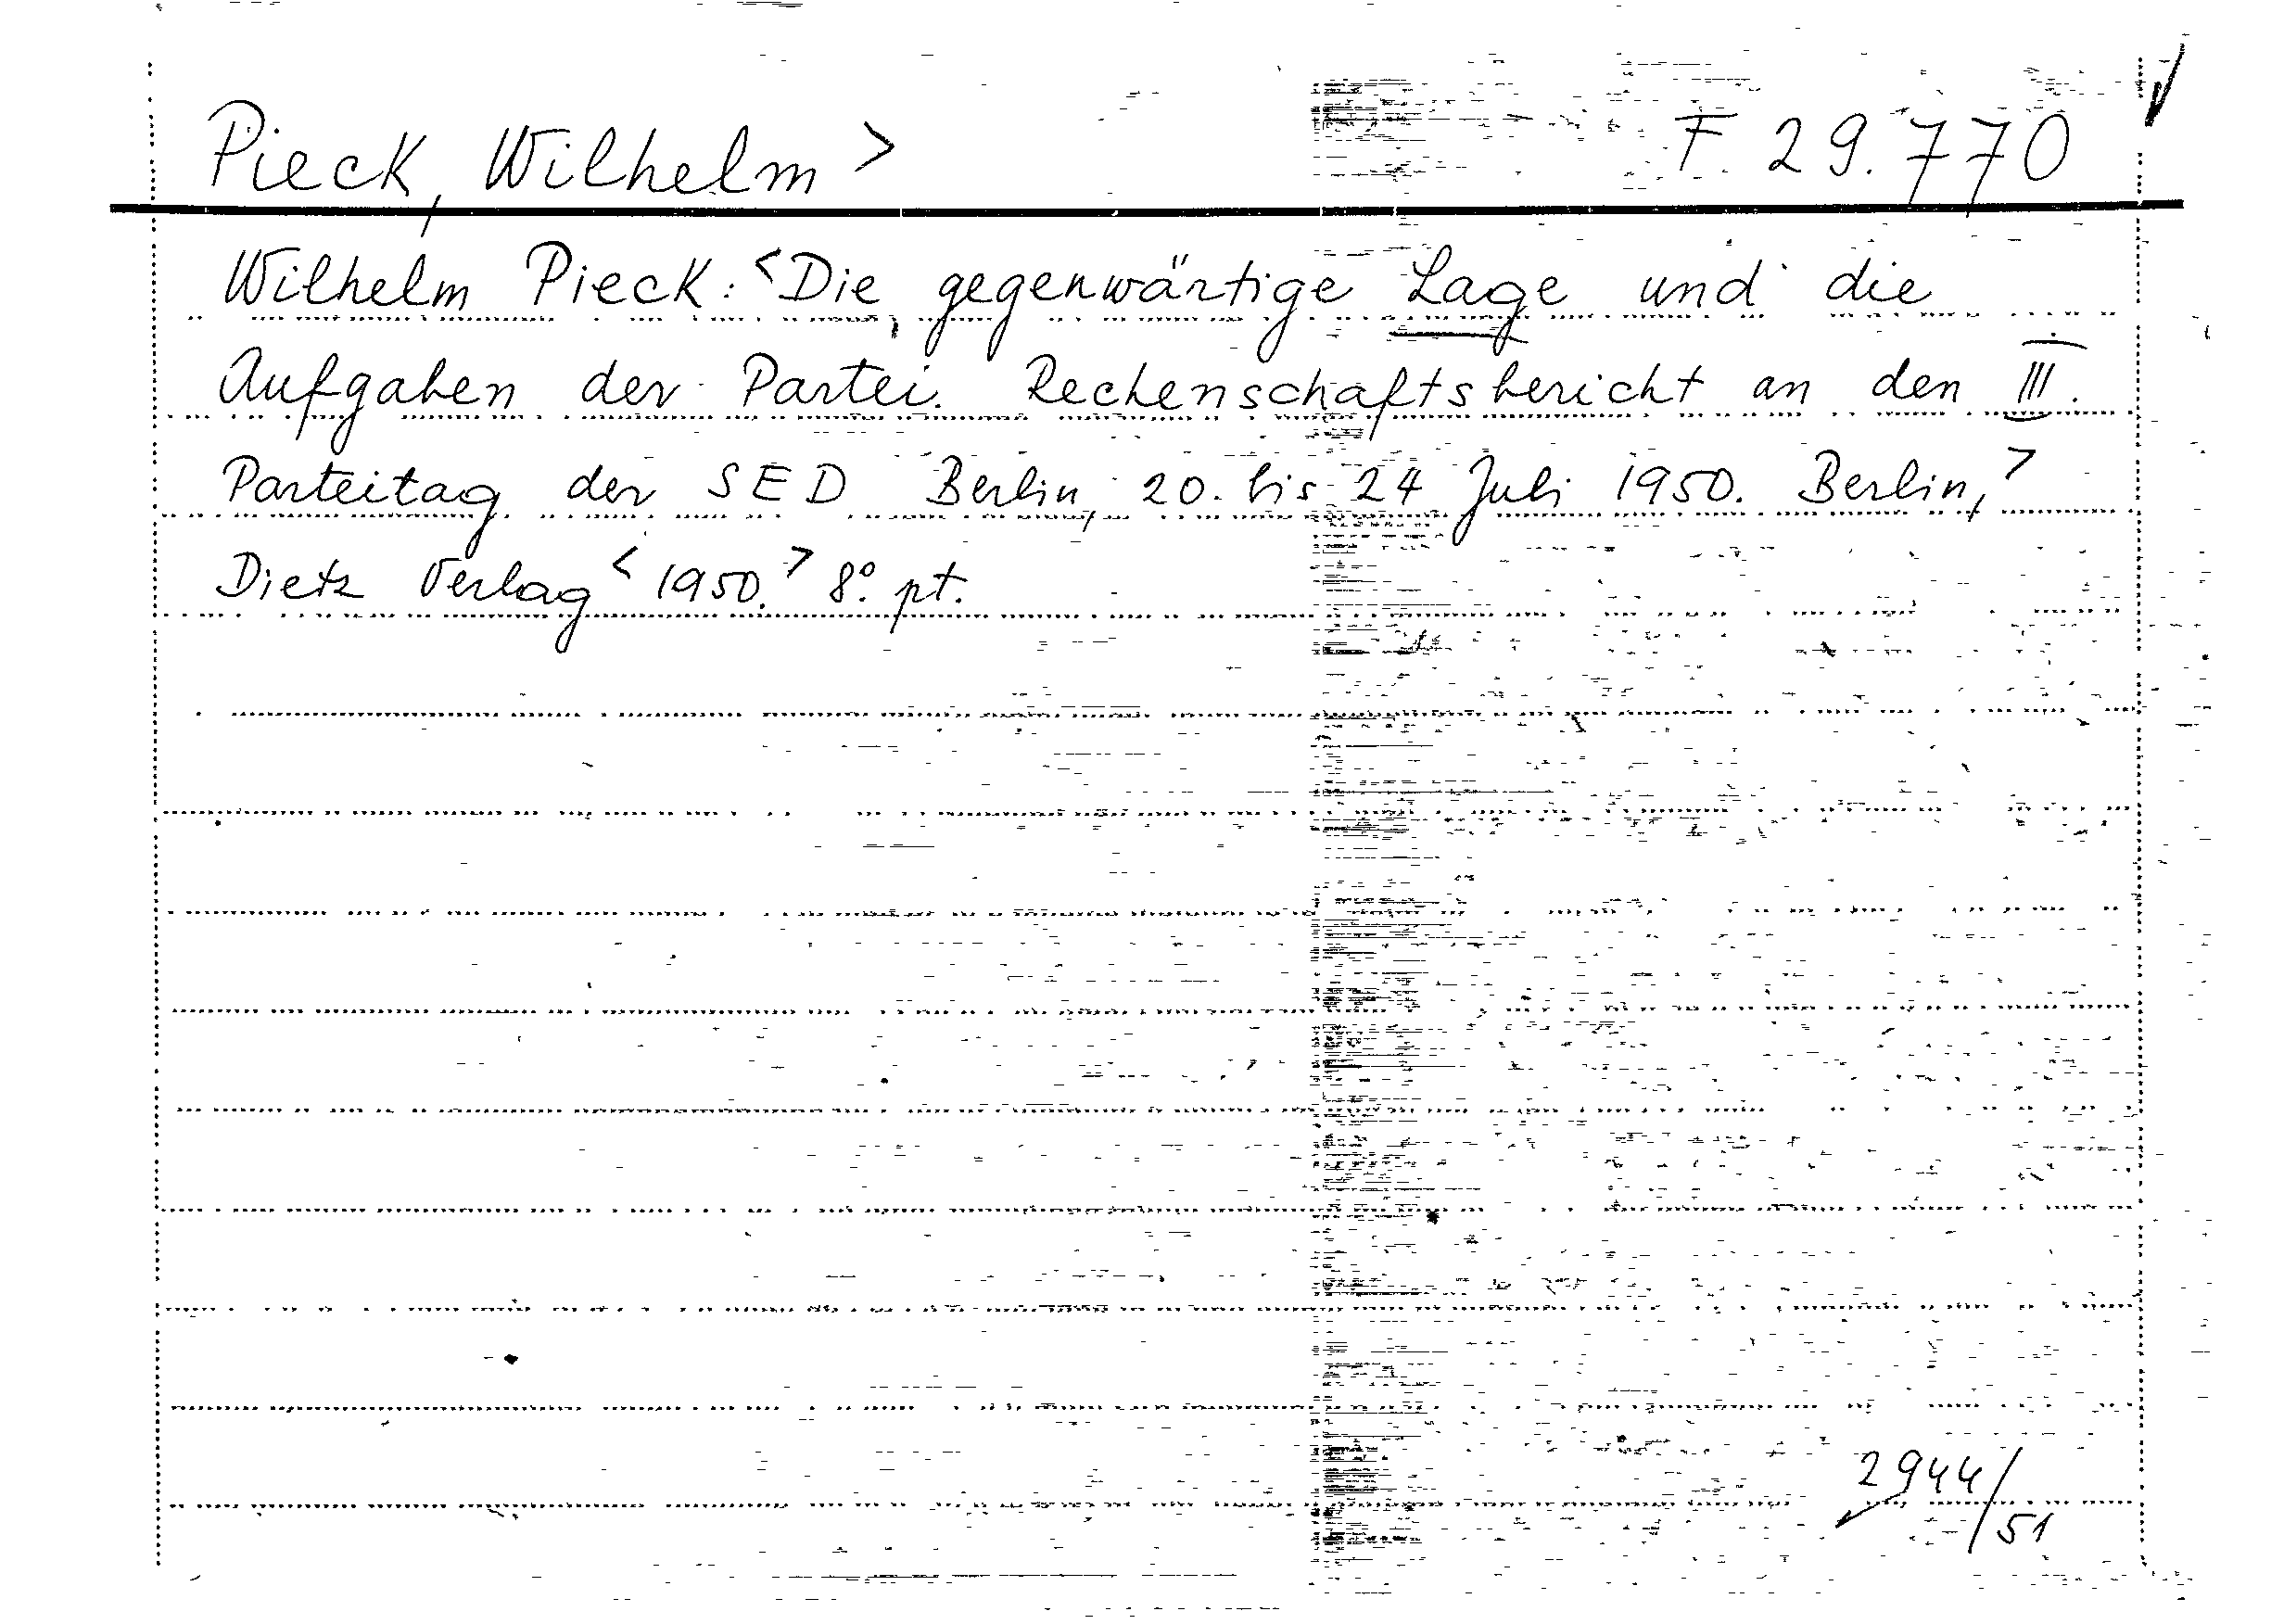 Pieck, Wilhelm > F 29.770
Wilhelm Pieck: <Die gegenwärtige Lage und die
Aufgaben der Partei. Rechenschaftsbericht an den III.
Parteitag der SED Berlin, 20. bis 24 Juli 1950. Berlin,>
Dietz Verlag <1950.> 8° pt.
2944/51